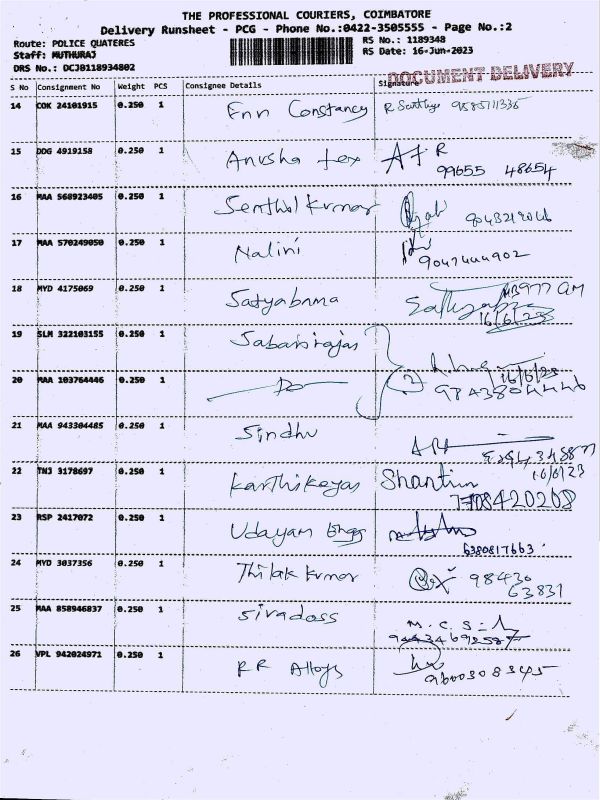 THE PROFESSIONAL COURIERS, COIMBATORE
Delivery Runsheet - PCG - Phone No.:0422-3505555 - Page No.:2
Route: POLICE QUATERES RS No.: 1189348
Staff: MUTHURAJ RS Date: 16-Jun-2023
DRS No.: DCJ0118934802
DOCUMENT DELIVERY
S No Consignment No Weight PCS Consignee Details Signature
14 COK 24101915 0.250 1 Enn Constancy
15 DDG 4919158 0.250 1 Anusha Tex A T R
99655 48654
16 MAA 568923405 0.250 1 Senthil Kumar
17 MAA 570249050 0.250 1 Nalini
9047444902
18 MYD 4175069 0.250 1 Satyabama
16/6/23
19 SLM 322103155 0.250 1 Sabarirajas
20 MAA 103764446 0.250 1 Do 2 16/6/23
9843804446
21 MAA 943304485 0.250 1 Sindhu
16/6/23
22 TNJ 3178697 0.250 1 Karthikeyas Shanti
7708420208
23 RSP 2417072 0.250 1 Udayam
6380817663
24 MYD 3037356 0.250 1 Thilak Kumar 98430
63831
25 MAA 858946837 0.250 1 Sivadass M. C. S.
26 VPL 942024971 0.250 1 RR Alloys
9600308345